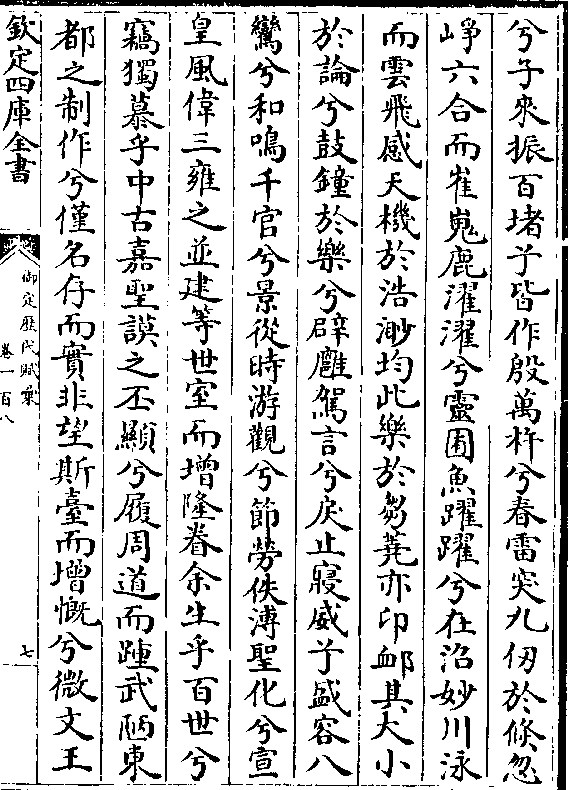 兮子來振百堵予皆作殷萬杵兮春雷突九仞於倐忽
崢六合而崔嵬鹿濯濯兮靈囿魚躍躍兮在沼妙川泳
而雲飛感天機於浩渺均此樂於芻蕘亦卬䘏其大小
於論兮鼓鐘於樂兮辟廱駕言兮戾止寢威予盛容八
鸞兮和鳴千官兮景從時游觀兮節勞佚溥聖化兮宣
皇風偉三雍之並建等世室而增隆眷余生乎百世兮
竊獨慕乎中古嘉聖謨之丕顯兮履周道而踵武陋東
都之制作兮僅名存而實非望斯臺而增慨兮微文王
欽定四庫全書
御定歷代賦彙
卷一百八
七